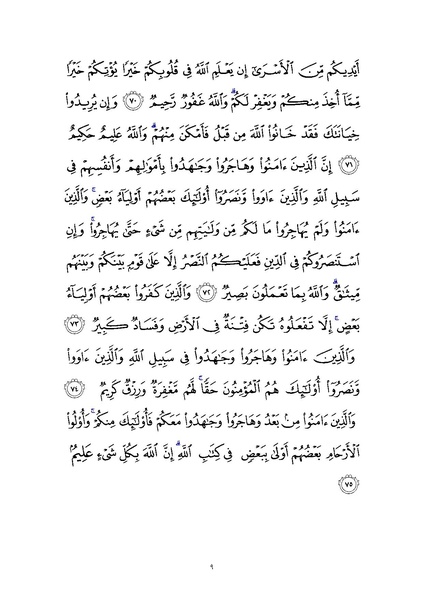 أَيْدِيكُم مِّنَ ٱلْأَسْرَىٰٓ إِن يَعْلَمِ ٱللَّهُ فِى قُلُوبِكُمْ خَيْرًا يُؤْتِكُمْ خَيْرًا
مِّمَّآ أُخِذَ مِنكُمْ وَيَغْفِرْ لَكُمْ ۗ وَٱللَّهُ غَفُورٌ رَّحِيمٌ ٧٠ وَإِن يُرِيدُوا۟
خِيَانَتَكَ فَقَدْ خَانُوا۟ ٱللَّهَ مِن قَبْلُ فَأَمْكَنَ مِنْهُمْ ۗ وَٱللَّهُ عَلِيمٌ حَكِيمٌ
٧١ إِنَّ ٱلَّذِينَ ءَامَنُوا۟ وَهَاجَرُوا۟ وَجَـٰهَدُوا۟ بِأَمْوَٰلِهِمْ وَأَنفُسِهِمْ فِى
سَبِيلِ ٱللَّهِ وَٱلَّذِينَ ءَاوَوا۟ وَّنَصَرُوٓا۟ أُو۟لَـٰٓئِكَ بَعْضُهُمْ أَوْلِيَآءُ بَعْضٍ ۚ وَٱلَّذِينَ
ءَامَنُوا۟ وَلَمْ يُهَاجِرُوا۟ مَا لَكُم مِّن وَلَـٰيَتِهِم مِّن شَىْءٍ حَتَّىٰ يُهَاجِرُوا۟ ۚ وَإِنِ
ٱسْتَنصَرُوكُمْ فِى ٱلدِّينِ فَعَلَيْكُمُ ٱلنَّصْرُ إِلَّا عَلَىٰ قَوْمٍۭ بَيْنَكُمْ وَبَيْنَهُم
مِّيثَـٰقٌ ۗ وَٱللَّهُ بِمَا تَعْمَلُونَ بَصِيرٌ ٧٢ وَٱلَّذِينَ كَفَرُوا۟ بَعْضُهُمْ أَوْلِيَآءُ
بَعْضٍ ۚ إِلَّا تَفْعَلُوهُ تَكُن فِتْنَةٌ فِى ٱلْأَرْضِ وَفَسَادٌ كَبِيرٌ ٧٣
وَٱلَّذِينَ ءَامَنُوا۟ وَهَاجَرُوا۟ وَجَـٰهَدُوا۟ فِى سَبِيلِ ٱللَّهِ وَٱلَّذِينَ ءَاوَوا۟
وَّنَصَرُوٓا۟ أُو۟لَـٰٓئِكَ هُمُ ٱلْمُؤْمِنُونَ حَقًّا ۚ لَّهُم مَّغْفِرَةٌ وَرِزْقٌ كَرِيمٌ ٧٤
وَٱلَّذِينَ ءَامَنُوا۟ مِنۢ بَعْدُ وَهَاجَرُوا۟ وَجَـٰهَدُوا۟ مَعَكُمْ فَأُو۟لَـٰٓئِكَ مِنكُمْ ۚ وَأُو۟لُوا۟
ٱلْأَرْحَامِ بَعْضُهُمْ أَوْلَىٰ بِبَعْضٍ فِى كِتَـٰبِ ٱللَّهِ ۗ إِنَّ ٱللَّهَ بِكُلِّ شَىْءٍ عَلِيمٌۢ
٧٥
٩